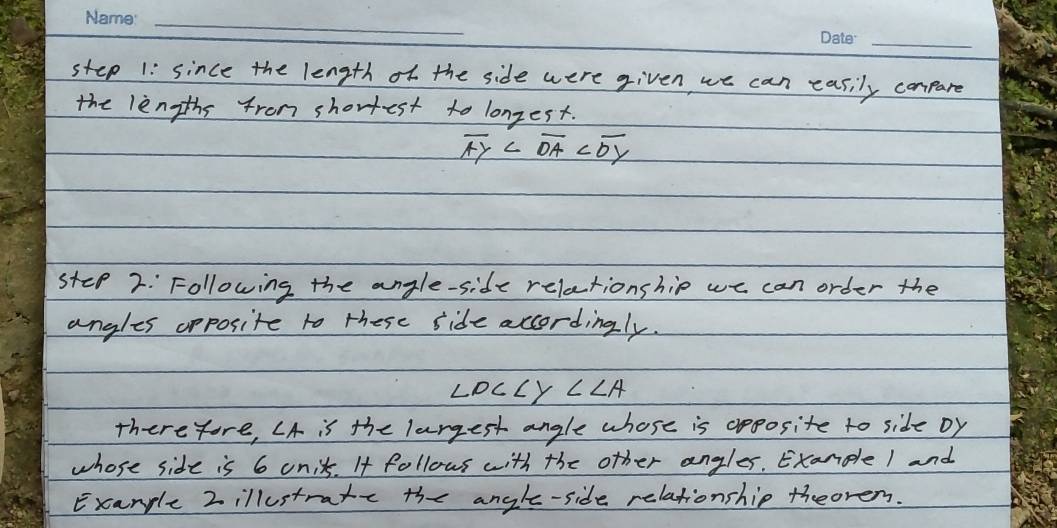 Name:
Date:
step 1: since the length of the side were given, we can easily compare
the lengths from shortest to longest.
A̅Y̅ < D̅A̅ < D̅Y̅
step 2: Following the angle-side relationship we can order the
angles opposite to these side accordingly.
∠D<∠Y <∠A
therefore, ∠A is the largest angle whose is opposite to side DY
whose side is 6 units. It follows with the other angles. Example 1 and
Example 2 illustrate the angle-side relationship theorem.